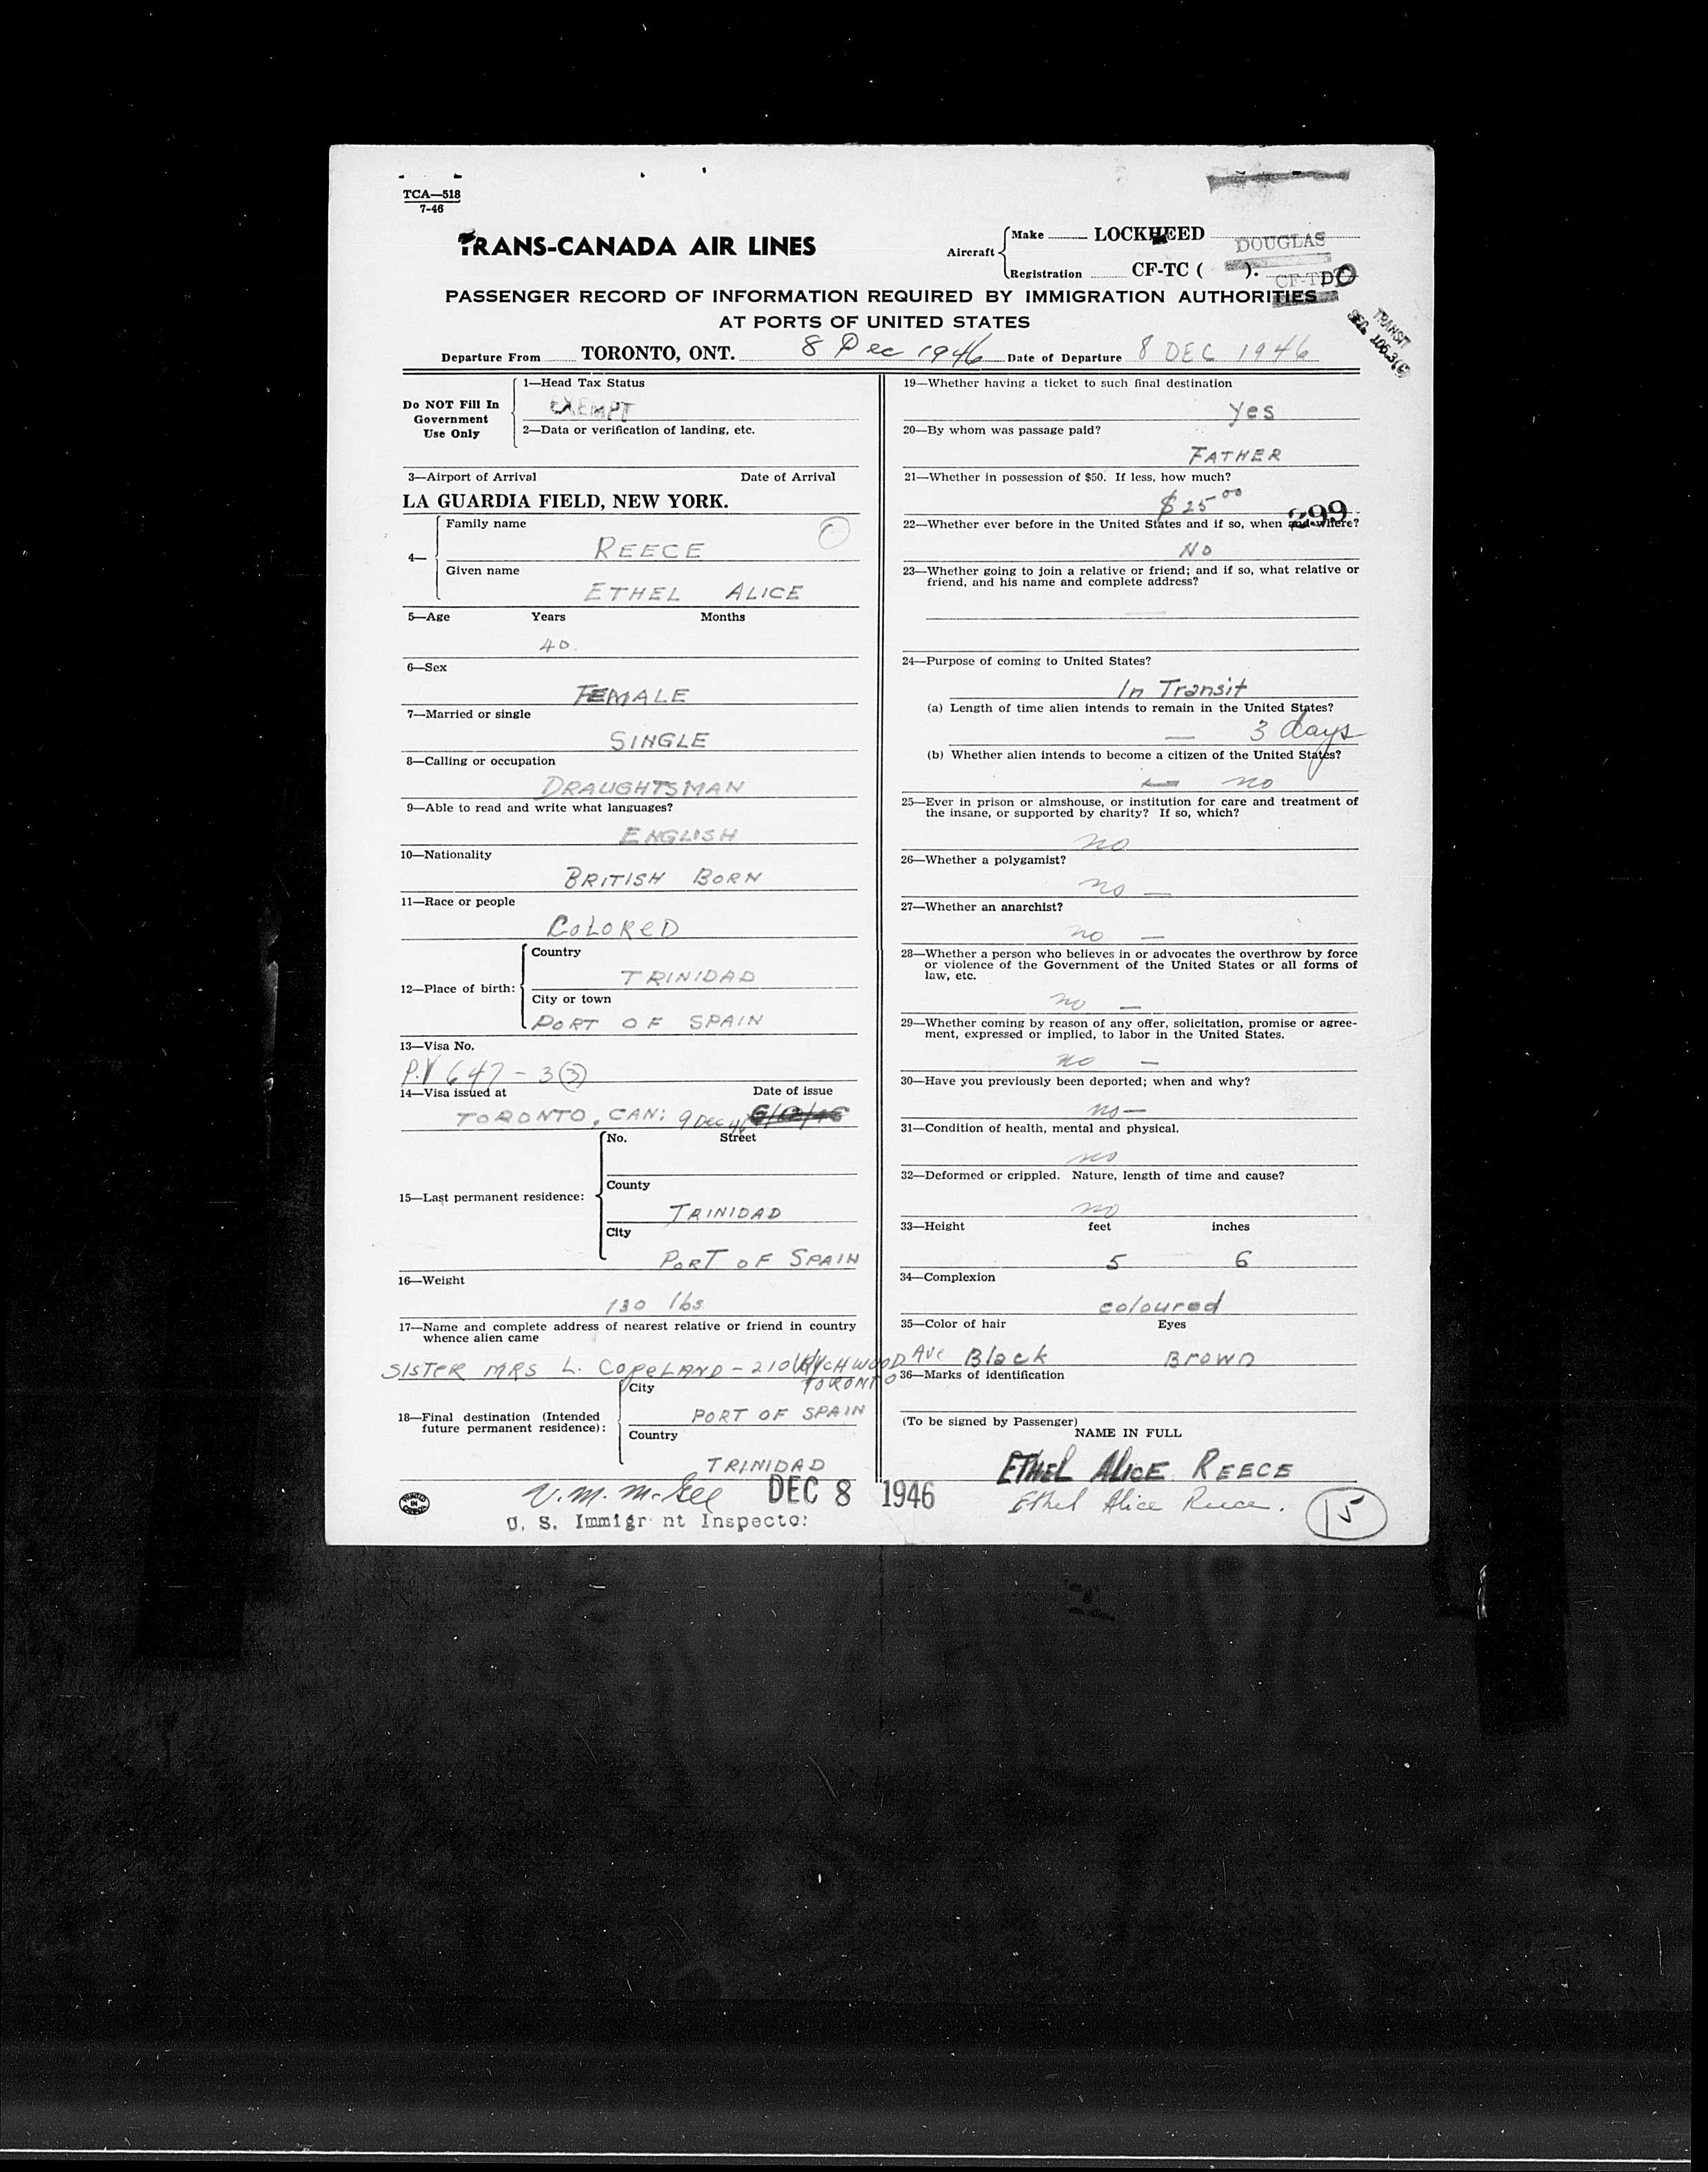 TCA—518
7-46
TRANS-CANADA AIR LINES
Aircraft
Make LOCKHEED DOUGLAS
Registration CF-TC ( ). CF-TDO
PASSENGER RECORD OF INFORMATION REQUIRED BY IMMIGRATION AUTHORITIES
AT PORTS OF UNITED STATES
TRANSIT
SEC.
Departure From TORONTO, ONT. 8 Dec 1946 Date of Departure 8 DEC 1946
Do NOT Fill In
Government
Use Only
1—Head Tax Status
EXEMPT
2—Data or verification of landing, etc.
3—Airport of Arrival Date of Arrival
LA GUARDIA FIELD, NEW YORK.
4—
Family name
REECE
Given name
ETHEL ALICE
5—Age Years Months
40
6—Sex
FEMALE
7—Married or single
SINGLE
8—Calling or occupation
DRAUGHTSMAN
9—Able to read and write what languages?
ENGLISH
10—Nationality
BRITISH BORN
11—Race or people
COLORED
12—Place of birth:
Country
TRINIDAD
City or town
PORT OF SPAIN
13—Visa No.
P.V 647 - 3 (3)
14—Visa issued at Date of issue
TORONTO, CAN: 9 Dec 46
15—Last permanent residence:
No. Street
County
TRINIDAD
City
PORT OF SPAIN
16—Weight
130 lbs.
17—Name and complete address of nearest relative or friend in country
whence alien came
SISTER MRS L. COPELAND - 210 WYCHWOOD AVE
TORONTO
18—Final destination (Intended
future permanent residence):
City
PORT OF SPAIN
Country
TRINIDAD
19—Whether having a ticket to such final destination
Yes
20—By whom was passage paid?
FATHER
21—Whether in possession of $50. If less, how much?
$25.00
299
22—Whether ever before in the United States and if so, when and where?
NO
23—Whether going to join a relative or friend; and if so, what relative or
friend, and his name and complete address?
—
24—Purpose of coming to United States?
In Transit
(a) Length of time alien intends to remain in the United States?
— 3 days
(b) Whether alien intends to become a citizen of the United States?
— no
25—Ever in prison or almshouse, or institution for care and treatment of
the insane, or supported by charity? If so, which?
no
26—Whether a polygamist?
no —
27—Whether an anarchist?
no —
28—Whether a person who believes in or advocates the overthrow by force
or violence of the Government of the United States or all forms of
law, etc.
no —
29—Whether coming by reason of any offer, solicitation, promise or agree-
ment, expressed or implied, to labor in the United States.
no —
30—Have you previously been deported; when and why?
no —
31—Condition of health, mental and physical.
no
32—Deformed or crippled. Nature, length of time and cause?
no
33—Height feet inches
5 6
34—Complexion
coloured
35—Color of hair Eyes
Black Brown
36—Marks of identification
(To be signed by Passenger)
NAME IN FULL
ETHEL ALICE REECE
Ethel Alice Reece.
15
V. M. McGee DEC 8 1946
U. S. Immigrant Inspector
PRINTED IN CANADA